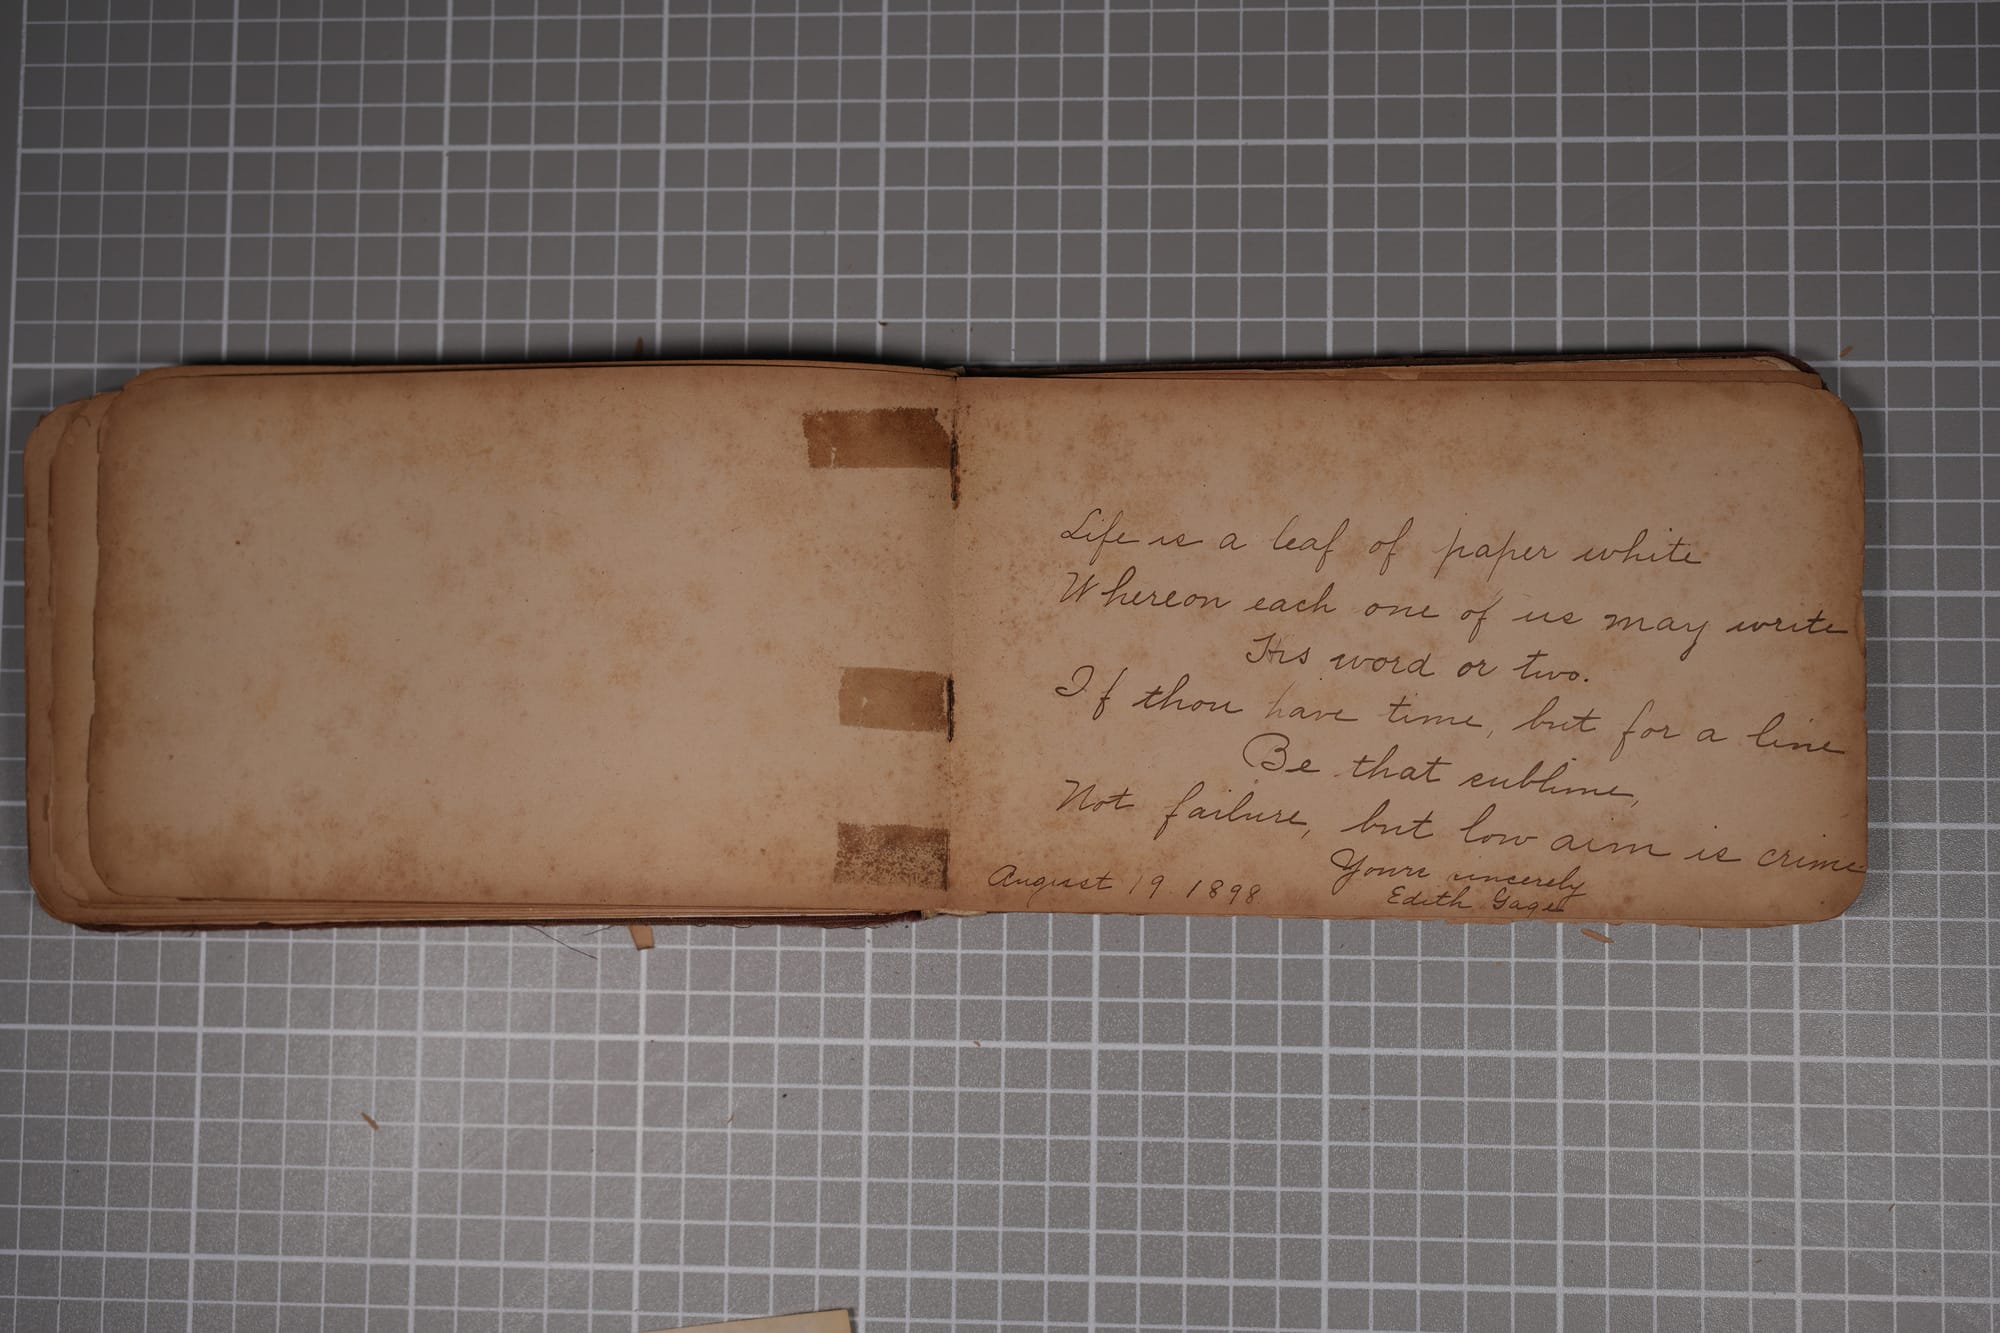 Life is a leaf of paper white
Whereon each one of us may write
His word or two.
If thou have time, but for a line
Be that sublime,
Not failure, but low aim is crime
Yours sincerely
August 19 1898
Edith Gage